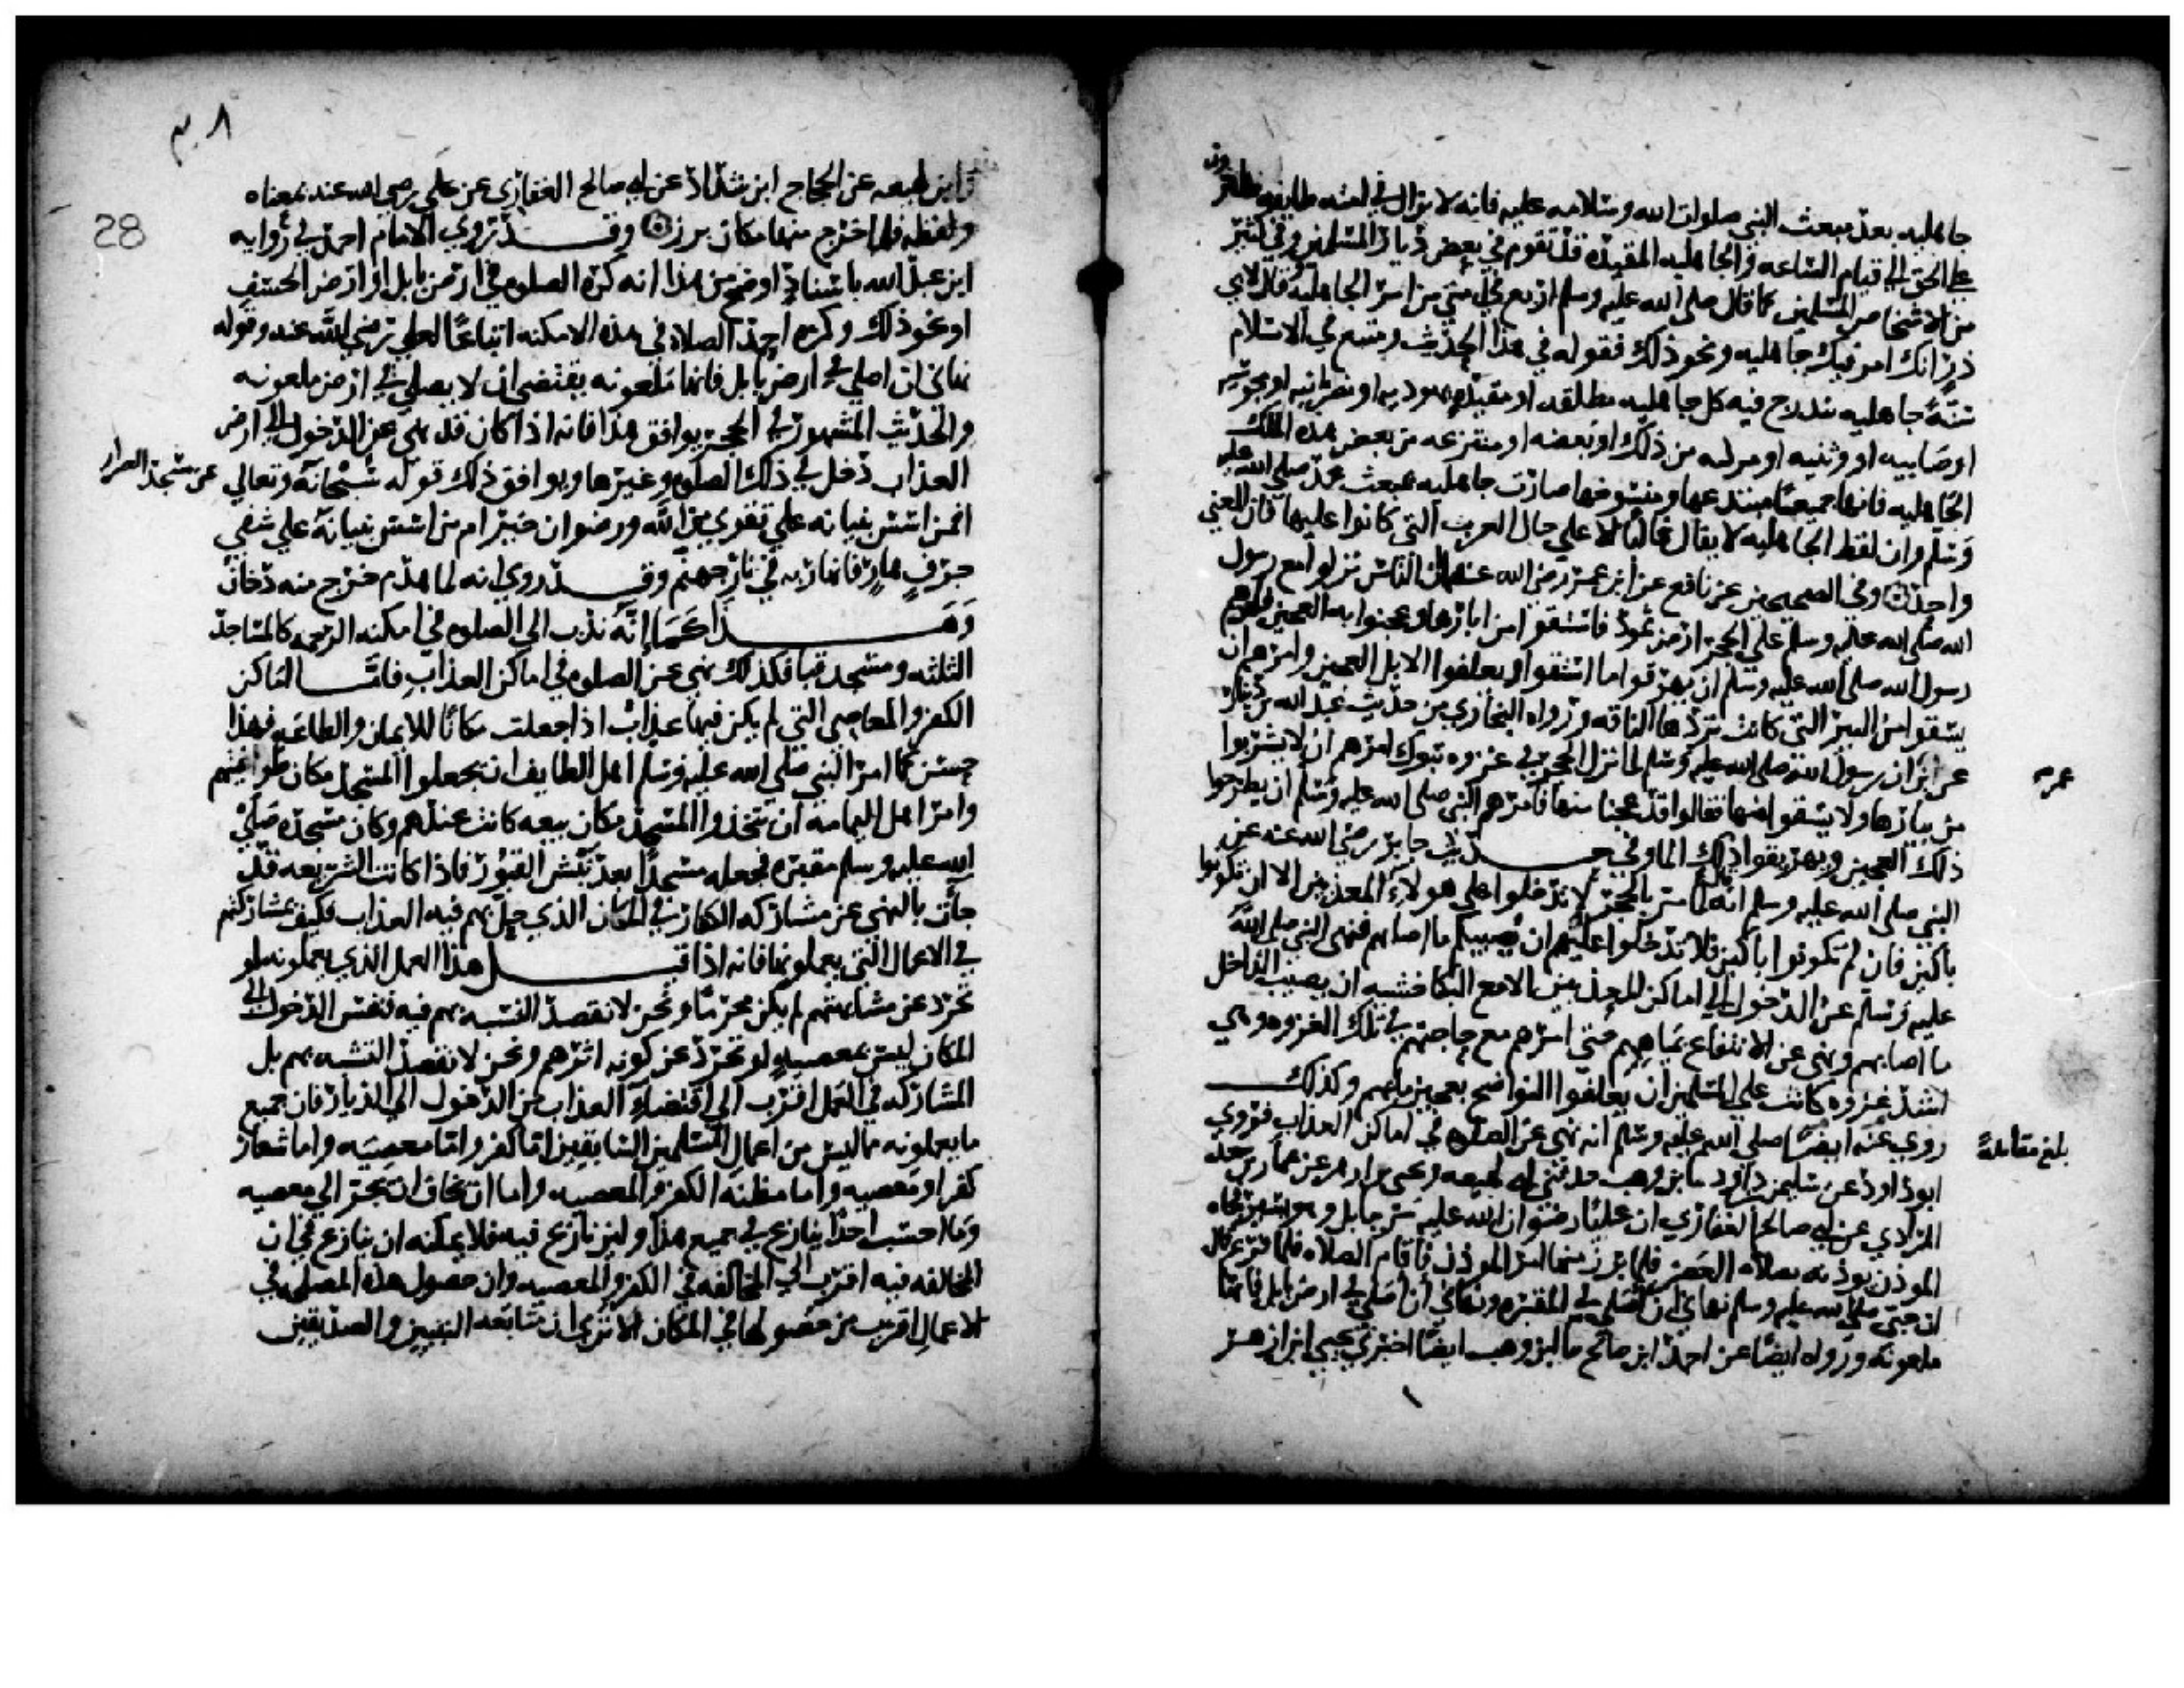 جاهليه بعد مبعث النبي صلوات الله وسلامه عليه فانه لا يزال في امته طايفه ظاهرون
على الحق الى قيام الساعه والجاهليه المقيده قد تقوم في بعض ديار المسلمين وفي كثير
من الاشخاص المسلمين كما قال صلى الله عليه وسلم اربع في امتي من امر الجاهلية وقال لابي
ذر انك امرؤ فيك جاهليه ونحو ذلك فقوله في هذا الحديث ومتبع في الاسلام
سنة جاهليه يندرج فيه كل جاهليه مطلقه او مقيده يهوديه او نصرانيه او مجوسيه
او صابيه او وثنيه او مركبه من ذلك او بعضه او منتزعه من بعض هذه الملل
الجاهليه فانها جميعا مبتدعها ومنسوخها صارت جاهليه بمبعث محمد صلى الله عليه
وسلم وان لفظ الجاهليه لا يقال غالبا الا على حال العرب التي كانوا عليها فان المعنى
واحد وفي الصحيحين عن نافع عن ابن عمر رضي الله عنهما ان الناس نزلوا مع رسول
الله صلى الله عليه وسلم على الحجر ارض ثمود فاستقوا من ابارها وعجنوا به العجين فامرهم
رسول الله صلى الله عليه وسلم ان يهرقوا ما استقوا ويعلفوا الابل العجين وامرهم ان
يستقوا من البير التي كانت تردها الناقه ورواه البخاري من حديث عبد الله بن دينار
عن ابن ان رسول الله صلى الله عليه وسلم لما نزل الحجر في غزوه تبوك امرهم ان لا يشربوا
عمر
من بيارها ولا يستقوا منها فقالوا قد عجنا منها فامرهم النبي صلى الله عليه وسلم ان يطرحوا
ذلك العجين ويهريقوا ذلك الماء وفي حديث جابر رضي الله عنه عن
النبي صلى الله عليه وسلم انه قال لما مر بالحجر لا تدخلوا على هولاء المعذبين الا ان تكونوا
باكين فان لم تكونوا باكين فلا تدخلوا عليهم ان يصيبكم ما اصابهم فنهى النبي صلى الله
عليه وسلم عن الدخول الى اماكن المعذبين الا مع البكا خشيه ان يصيب الداخل
ما اصابهم ونهى عن الانتفاع بمياههم حتى امرهم مع حاجتهم في تلك الغزوه وهي
اشد غزوه كانت على المسلمين ان يعلفوا النواضح بعجين مايهم وكذلك
روي عنه ايضا صلى الله عليه وسلم انه نهى عن الصلوه في اماكن العذاب فروى
بلغ مقابلة
ابو داود عن سليمن بن داود ثنا ابن وهب حدثني ابن لهيعه ويحيى بن ازهر عن عمار بن سعد
المرادي عن ابي صالح الغفاري ان عليا رضوان الله عليه مر ببابل وهو يسير فجاه
الموذن يوذنه بصلاه العصر فلما برز منها امر الموذن فاقام الصلاه فلما فرغ قال
ان حبي صلى الله عليه وسلم نهاني ان اصلي في المقبره ونهاني ان اصلي في ارض بابل فانها
ملعونه ورواه ايضا عن احمد ابن صالح ثنا ابن وهب ايضا اخبرني يحيى ابن ازهر
٣٠٨
28
وابن لهيعه عن الحجاج ابن شداد عن ابي صالح الغفاري عن علي رضي الله عنه بمعناه
ولفظه فلما خرج منها مكان برز وقد روى الامام احمد في روايه
ابن عبد الله باسناد اوضح من هذا انه كره الصلوه في ارض بابل او ارض الخسف
او نحو ذلك وكره احمد الصلاه في هذه الامكنه اتباعا لعلي رضي الله عنه وقوله
نهاني ان اصلي في ارض بابل فانها ملعونه يقتضي ان لا يصلى في ارض ملعونه
والحديث المشهور في الحجر يوافق هذا فانه اذا كان قد نهى عن الدخول الى ارض
العذاب دخل في ذلك الصلوه وغيرها ويوافق ذلك قوله سبحانه وتعالى عن مسجد الضرار
افمن اسس بنيانه على تقوى من الله ورضوان خير ام من اسس بنيانه على شفى
جرف هار فانهار به في نار جهنم وقد روي انه لما هدم خرج منه دخان
وهذا كما انه ندب الى الصلوه في امكنه الرحمه كالمساجد
الثلثه ومسجد قبا فكذلك نهى عن الصلوه في اماكن العذاب فاما اماكن
الكفر والمعاصي التي لم يكن فيها عذاب اذا جعلت مكانا للايمان والطاعه فهذا
حسن كما امر النبي صلى الله عليه وسلم اهل الطايف ان يجعلوا المسجد مكان طواغيتهم
وامر اهل اليمامه ان يتخذوا المسجد مكان بيعه كانت عندهم وكان مسجده صلى
الله عليه وسلم مقبره فجعله مسجدا بعد نبش القبور فاذا كانت الشريعه قد
جات بالنهي عن مشاركه الكفار في المكان الذي حل بهم فيه العذاب فكيف بمشاركتهم
في الاعمال التي يعملونها فانه اذا قيل هذا العمل الذي يعملونه لو
تجرد عن مشابهتهم لم يكن محرما ونحن لا نقصد التشبه بهم فيه فنفس الدخول الى
المكان ليس بمعصيه لو تجرد عن كونه اثرهم ونحن لا نقصد التشبه بهم بل
المشاركه في العمل اقرب الى اقتضاء العذاب من الدخول الى الديار فان جميع
ما يعملونه مما ليس من اعمال المسلمين السابقين اما كفر واما معصيه واما شعار
كفر او معصيه واما مظنه الكفر والمعصيه واما ان يخاف ان يجر الى معصيه
وما احسب احدا ينازع في جميع هذا ولين نازع فيه فلا يمكنه ان ينازع في ان
المخالفه فيه اقرب الى المخالفه في الكفر والمعصيه وان حصول هذه المصلحه في
الاعمال اقرب من حصولها في المكان الا ترى ان متابعه النبيين والصديقين